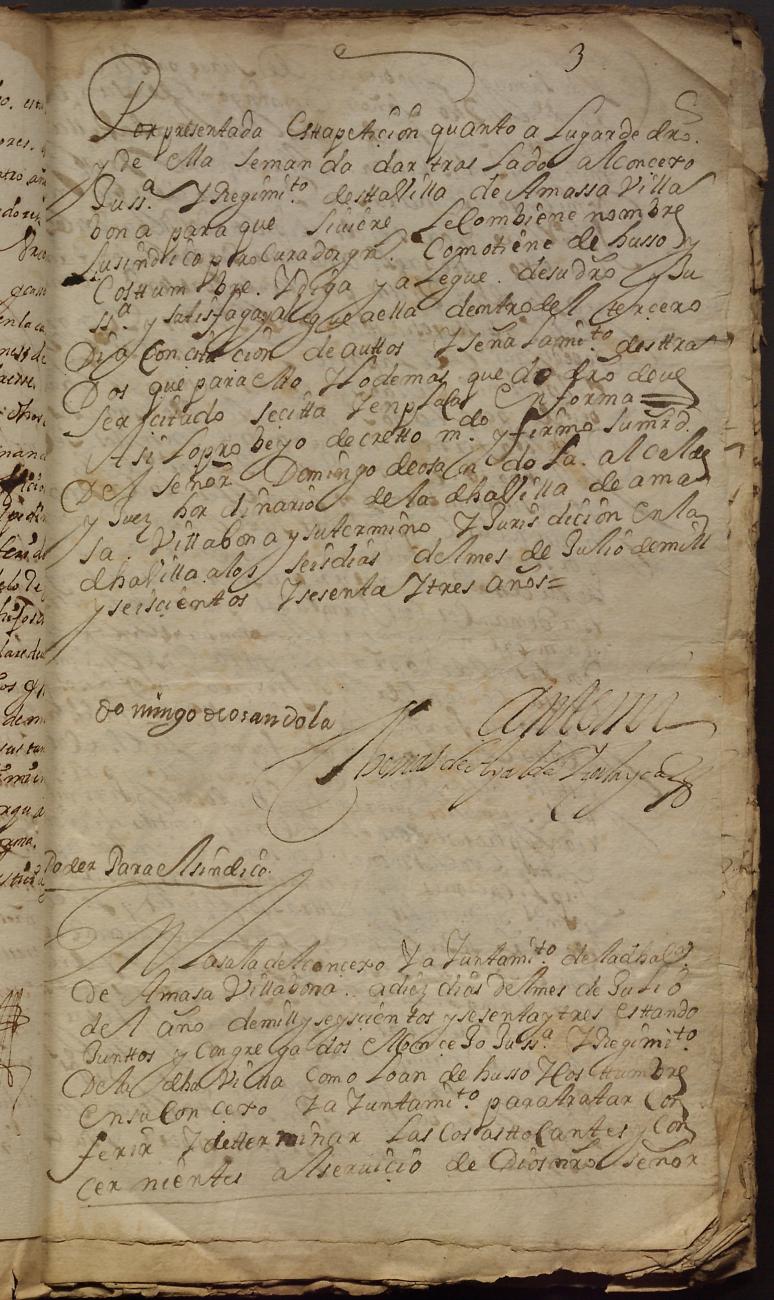 3
Por presentada Esta peticion quanto a lugar de dro.
y de ella se manda dar traslado al concero
Juss.ª Y Regimi.to desta Villa de Amassa Villa
bona para que siviere le Combiene nombre
su sindico procurador gnl. Como tiene de husso y
Costtumbre. Y diga y alegue. de su dro y Ju
ss.ª y satisfaga y alegue a ella dentro del tercero
Dia Con citacion de auttos Y señalami.to destra
Dos que para ello Y lo demas que de dro deve
Ser citado se citta en forma
Asi lo probeyo decretto m.do y firmo su mrd.
Del señor Domingo de osandola. alcalde
y Juez hordinario de la dha Villa de ama
sa. Villabona y su termino Y Jurisdicion En la
dha Villa a los seis dias del mes de Julio de mill
y seiscientos Y sesenta Y tres años=
domingo de osandola
Ante mi
Thomas de
Poder Para el sindico.
En la sala del concero Y a Juntami.to de la dha
De Amasa Villabona. a diez dias del mes de Julio
del año de mill y seyscientos y sesenta y tres Estando
Junttos y Congregados el Concejo Juss.ª Y Regimi.to
De la dha Villa Como lo an de husso Y Costtumbre
En su Concero Y a Juntami.to para tratar Con
ferir Y determinar Las Cosas ttocantes y Con
cernientes al servicio de Dios nro señor